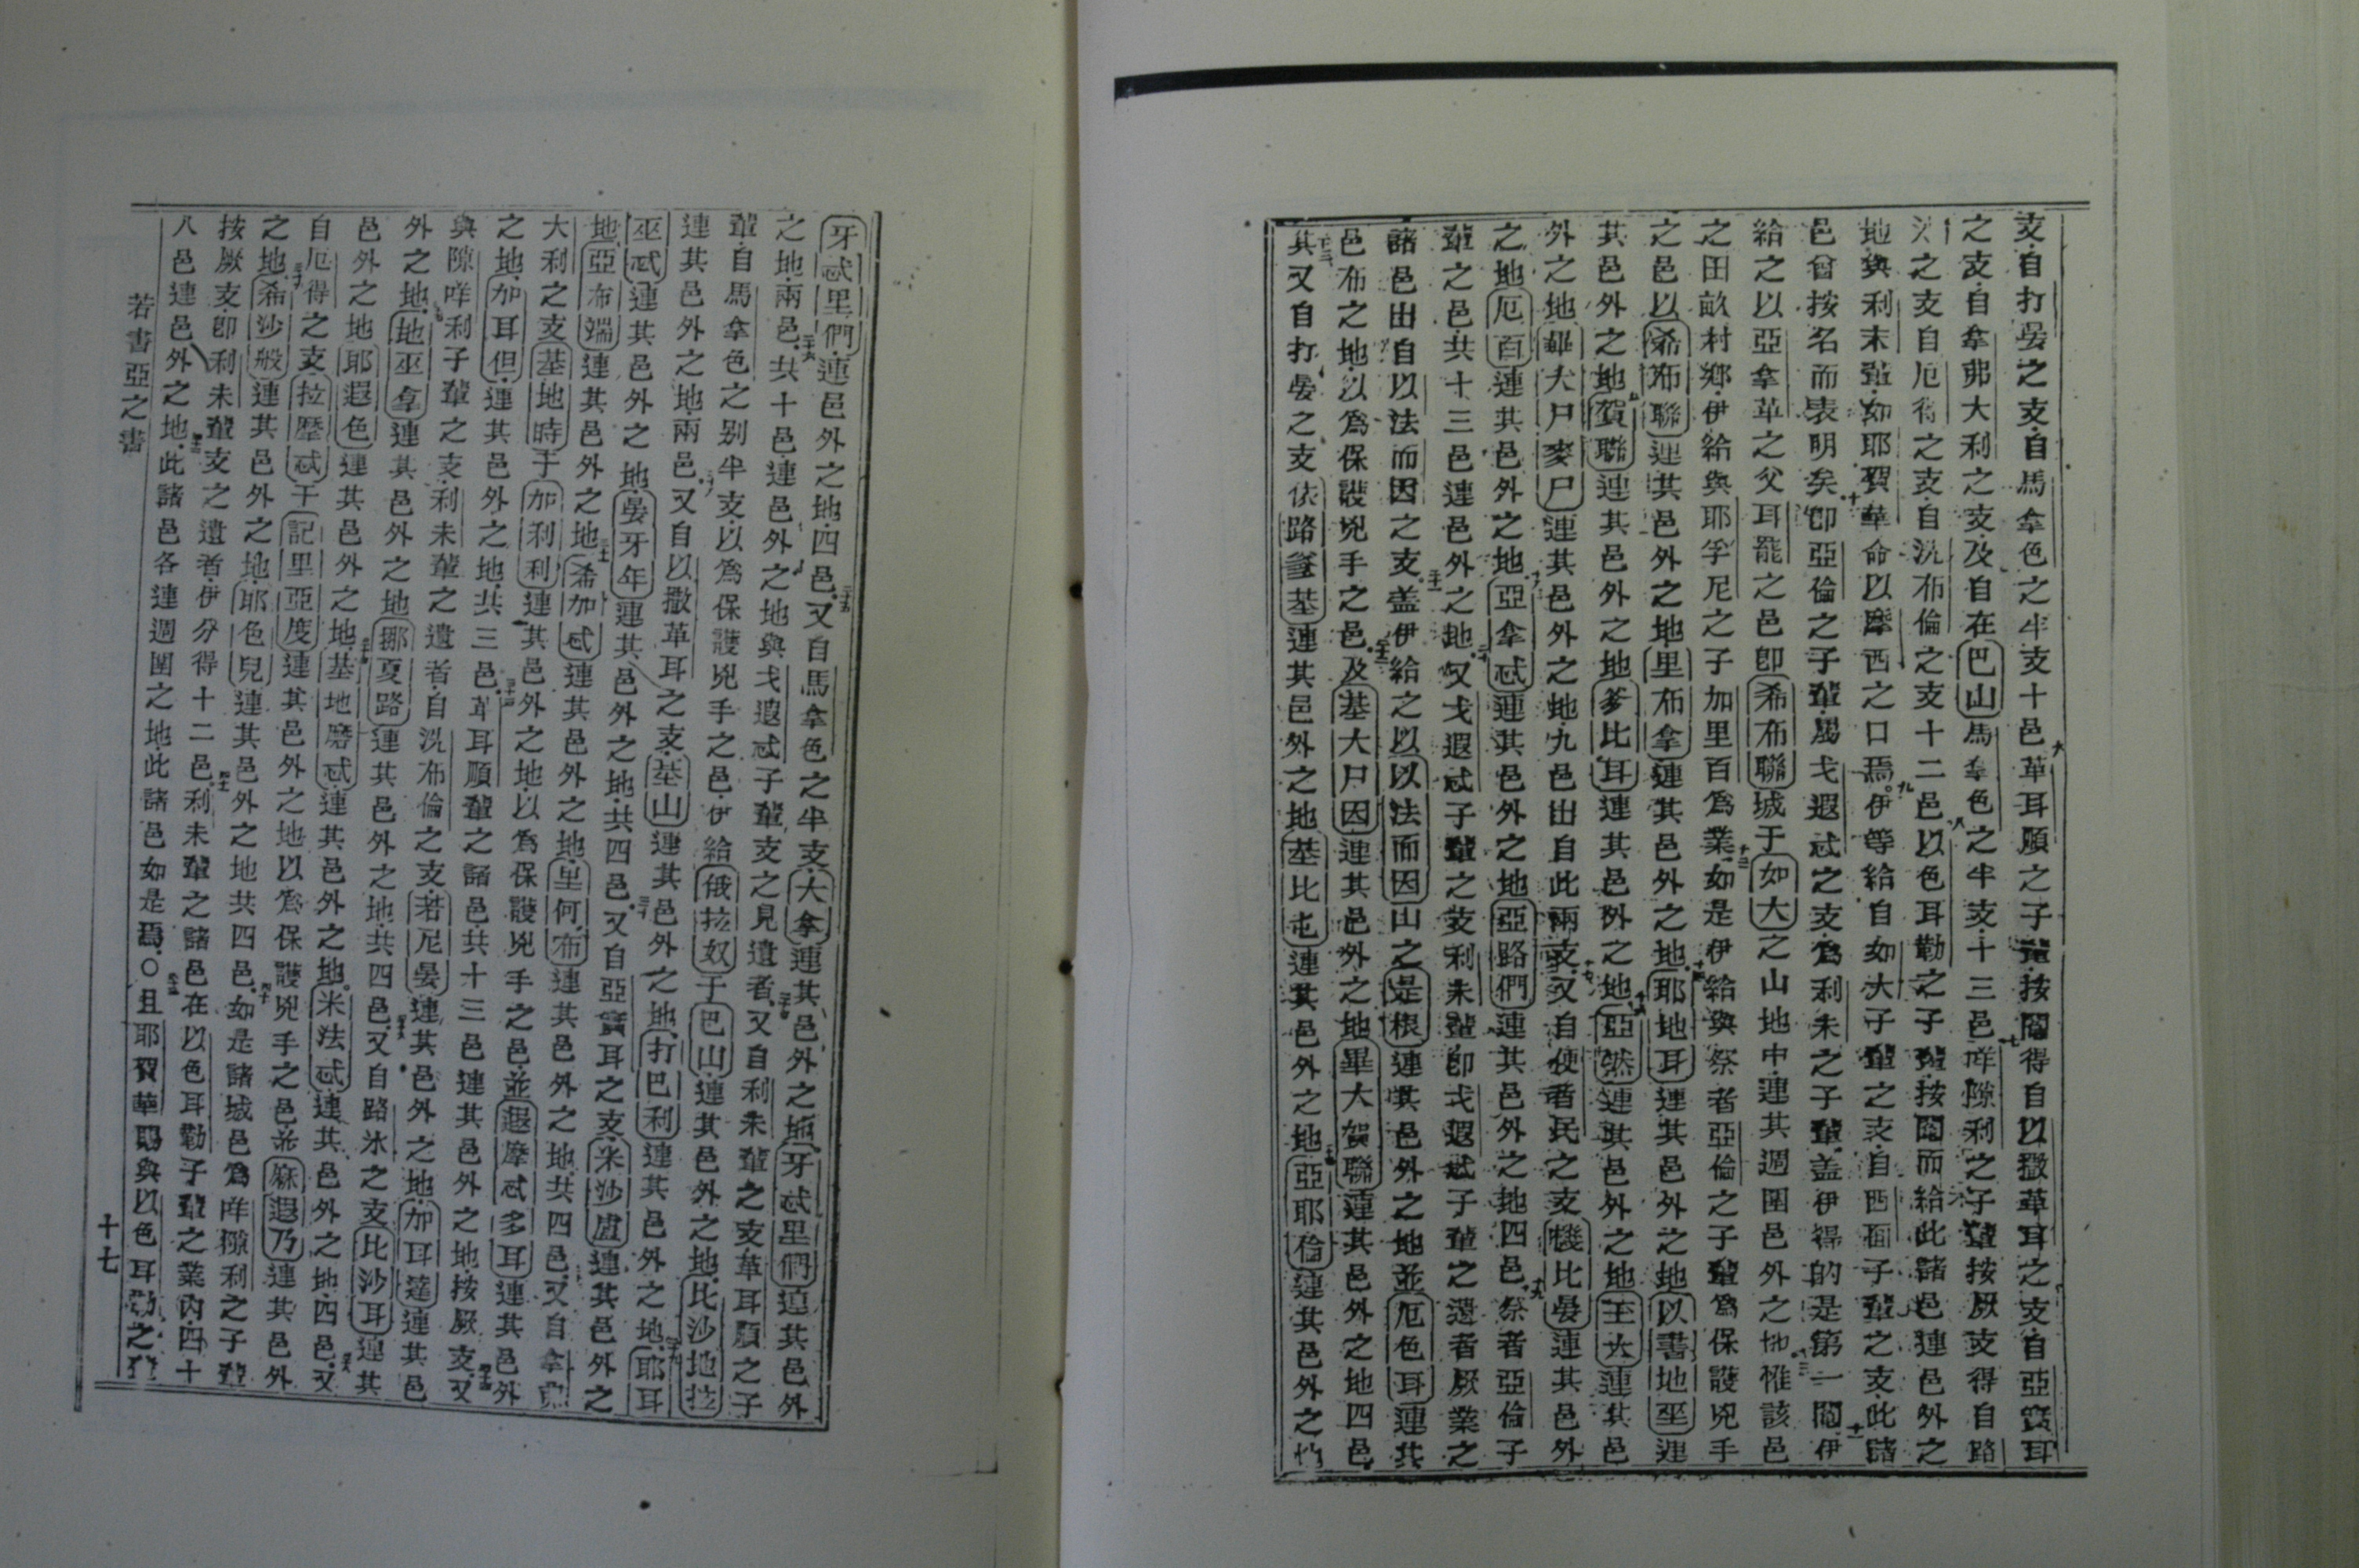 支自打晏之支自馬拿色之半支十邑六革耳順之子輩按鬮得自以撒革耳之支自亞實耳
之支自拿弗大利之支及自在巴山馬拿色之半支十三邑七咩隙利之子輩按厥支得自路
之支自厄得之支自洗布倫之支十二邑八以色耳勒之子輩按鬮而給此諸邑連邑外之
地與利未輩如耶賀華命以摩西之口焉九伊等給自如大子輩之支自西面子輩之支此諸
邑曾按名而表明矣十卽亞倫之子輩屬戈遐忒之支為利未之子輩盖伊得的是第一鬮十一伊
給之以亞拿革之父耳罷之邑卽希布聯城于如大之山地中連其週圍邑外之地十二惟該邑
之田畝村鄉伊給與耶孚尼之子加里百為業十三如是伊給與祭者亞倫之子輩為保護兇手
之邑以希布聯連其邑外之地里布拿連其邑外之地十四耶地耳連其邑外之地以書地巫連
其邑外之地十五賀聯連其邑外之地爹比耳連其邑外之地十六亞然連其邑外之地至大連其邑
外之地畢大尸麥尸連其邑外之地九邑出自此兩支十七又自便者民之支幾比晏連其邑外
之地厄百連其邑外之地十八亞拿忒連其邑外之地亞路們連其邑外之地四邑十九祭者亞倫子
輩之邑共十三邑連邑外之地二十又戈遐忒子輩之支利未輩卽戈遐忒子輩之遺者厥業之
諸邑出自以法而因之支二十一盖伊給之以以法而因山之是根連其邑外之地並厄色耳連其
邑外之地以為保護兇手之邑二十二及基大尸因連其邑外之地畢大賀聯連其邑外之地四邑
二十三其又自打晏之支依路爹基連其邑外之地基比屯連其邑外之地二十四亞耶倫連其邑外之地
牙忒里們連邑外之地四邑二十五又自馬拿色之半支大拿連其邑外之地牙忒里們連其邑外
之地兩邑二十六共十邑連邑外之地與戈遐忒子輩支之見遺者二十七又自利未輩之支革耳順之子
輩自馬拿色之別半支以為保護兇手之邑伊給俄拉奴于巴山連其邑外之地比沙地拉
連其邑外之地兩邑二十八又自以撒革耳之支基山連其邑外之地打巴利連其邑外之地二十九耶耳
巫忒連其邑外之地晏牙年連其邑外之地共四邑三十又自亞實耳之支米沙盧連其邑外之
地亞布端連其邑外之地三十一希加忒連其邑外之地里何布連其邑外之地共四邑三十二又自拿弗
大利之支基地時于加利利連其邑外之地以為保護兇手之邑並遐摩忒多耳連其邑外
之地加耳但連其邑外之地共三邑三十三革耳順輩之諸邑共十三邑連其邑外之地按厥支三十四又
與隙咩利子輩之支利未輩之遺者自洗布倫之支若尼晏連其邑外之地加耳達連其邑
外之地三十五地巫拿連其邑外之地挪夏路連其邑外之地共四邑三十六又自路氷之支比沙耳連其
邑外之地耶遐色連其邑外之地三十七基地磨忒連其邑外之地米法忒連其邑外之地四邑三十八又
自厄得之支拉歷忒于記里亞度連其邑外之地以為保護兇手之邑並麻遐乃連其邑外
之地三十九希沙般連其邑外之地耶色兒連其邑外之地共四邑四十如是諸城邑為咩獵利之子輩
按厥支卽利未輩支之遺者伊分得十二邑四十一利未輩之諸邑在以色耳勒子輩之業內四十
八邑連邑外之地四十二此諸邑各連週圍之地此諸邑如是焉〇四十三且耶賀華賜與以色耳勒之輩
若書亞之書
十七